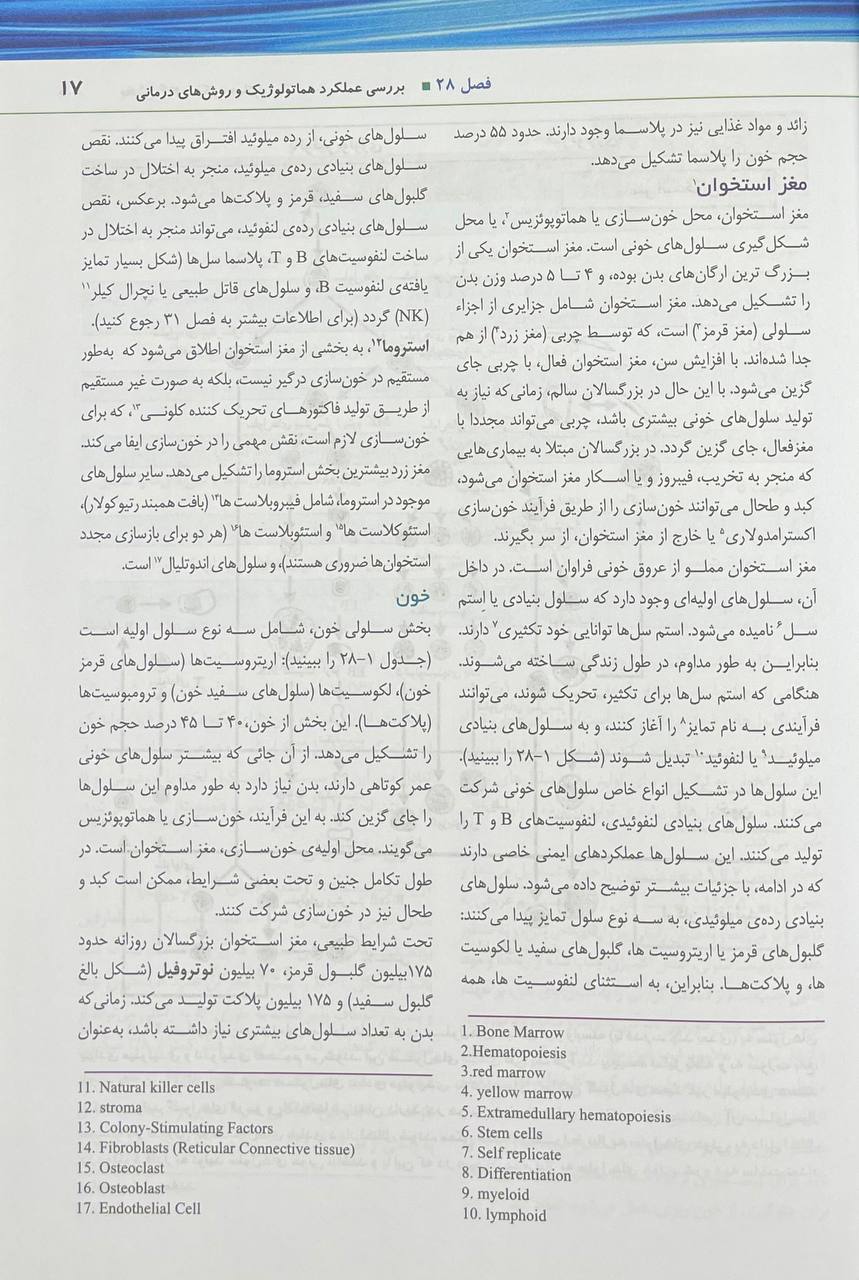 فصل ۲۸ ■ بررسی عملکرد هماتولوژیک و روش‌های درمانی
۱۷
زائد و مواد غذایی نیز در پلاسما وجود دارند. حدود ۵۵ درصد
حجم خون را پلاسما تشکیل می‌دهد.
مغز استخوان۱
مغز استخوان، محل خون‌سازی یا هماتوپوئزیس۲، یا محل
شکل‌گیری سلول‌های خونی است. مغز استخوان یکی از
بزرگ ترین ارگان‌های بدن بوده، و ۴ تا ۵ درصد وزن بدن
را تشکیل می‌دهد. مغز استخوان شامل جزایری از اجزاء
سلولی (مغز قرمز۳) است، که توسط چربی (مغز زرد۴) از هم
جدا شده‌اند. با افزایش سن، مغز استخوان فعال، با چربی جای
گزین می‌شود. با این حال در بزرگسالان سالم، زمانی‌که نیاز به
تولید سلول‌های خونی بیشتری باشد، چربی می‌تواند مجددا با
مغزفعال، جای گزین گردد. در بزرگسالان مبتلا به بیماری‌هایی
که منجر به تخریب، فیبروز و یا اسکار مغز استخوان می‌شود،
کبد و طحال می‌توانند خون‌سازی را از طریق فرآیند خون‌سازی
اکسترامدولاری۵ یا خارج از مغز استخوان، از سر بگیرند.
مغز استخوان مملو از عروق خونی فراوان است. در داخل
آن، سلول‌های اولیه‌ای وجود دارد که سلول بنیادی یا استم
سل۶ نامیده می‌شود. استم سل‌ها توانایی خود تکثیری۷ دارند.
بنابراین به طور مداوم، در طول زندگی ساخته می‌شوند.
هنگامی که استم سل‌ها برای تکثیر، تحریک شوند، می‌توانند
فرآیندی به نام تمایز۸ را آغاز کنند، و به سلول‌های بنیادی
میلوئید۹ یا لنفوئید۱۰ تبدیل شوند (شکل ۱-۲۸ را ببینید).
این سلول‌ها در تشکیل انواع خاص سلول‌های خونی شرکت
می‌کنند. سلول‌های بنیادی لنفوئیدی، لنفوسیت‌های B و T را
تولید می‌کنند. این سلول‌ها عملکردهای ایمنی خاصی دارند
که در ادامه، با جزئیات بیشتر توضیح داده می‌شود. سلول‌های
بنیادی رده‌ی میلوئیدی، به سه نوع سلول تمایز پیدا می‌کنند:
گلبول‌های قرمز یا اریتروسیت ها، گلبول‌های سفید یا لکوسیت
ها، و پلاکت‌ها. بنابراین، به استثنای لنفوسیت ها، همه
1. Bone Marrow
2.Hematopoiesis
3.red marrow
4. yellow marrow
5. Extramedullary hematopoiesis
6. Stem cells
7. Self replicate
8. Differentiation
9. myeloid
10. lymphoid
سلول‌های خونی، از رده میلوئید افتراق پیدا می‌کنند. نقص
سلول‌های بنیادی رده‌ی میلوئید، منجر به اختلال در ساخت
گلبول‌های سفید، قرمز و پلاکت‌ها می‌شود. برعکس، نقص
سلول‌های بنیادی رده‌ی لنفوئید، می‌تواند منجر به اختلال در
ساخت لنفوسیت‌های B و T، پلاسما سل‌ها (شکل بسیار تمایز
یافته‌ی لنفوسیت B، و سلول‌های قاتل طبیعی یا نچرال کیلر۱۱
(NK) گردد (برای اطلاعات بیشتر به فصل ۳۱ رجوع کنید).
استروما۱۲، به بخشی از مغز استخوان اطلاق می‌شود که به‌طور
مستقیم در خون‌سازی درگیر نیست، بلکه به صورت غیر مستقیم
از طریق تولید فاکتورهای تحریک کننده کلونی۱۳، که برای
خون‌سازی لازم است، نقش مهمی را در خون‌سازی ایفا می‌کند.
مغز زرد بیشترین بخش استروما را تشکیل می‌دهد. سایر سلول‌های
موجود در استروما، شامل فیبروبلاست ها۱۴ (بافت همبند رتیوکولار)،
استئوکلاست ها۱۵ و استئوبلاست ها۱۶ (هر دو برای بازسازی مجدد
استخوان‌ها ضروری هستند)، و سلول‌های اندوتلیال۱۷ است.
خون
بخش سلولی خون، شامل سه نوع سلول اولیه است
(جدول ۱-۲۸ را ببینید): اریتروسیت‌ها (سلول‌های قرمز
خون)، لکوسیت‌ها (سلول‌های سفید خون) و ترومبوسیت‌ها
(پلاکت‌ها). این بخش از خون، ۴۰ تا ۴۵ درصد حجم خون
را تشکیل می‌دهد. از آن جائی که بیشتر سلول‌های خونی
عمر کوتاهی دارند، بدن نیاز دارد به طور مداوم این سلول‌ها
را جای گزین کند. به این فرآیند، خون‌سازی یا هماتوپوئزیس
می‌گویند. محل اولیه‌ی خون‌سازی، مغز استخوان است. در
طول تکامل جنین و تحت بعضی شرایط، ممکن است کبد و
طحال نیز در خون‌سازی شرکت کنند.
تحت شرایط طبیعی، مغز استخوان بزرگسالان روزانه حدود
۱۷۵بیلیون گلبول قرمز، ۷۰ بیلیون نوتروفیل (شکل بالغ
گلبول سفید) و ۱۷۵ بیلیون پلاکت تولید می‌کند. زمانی‌که
بدن به تعداد سلول‌های بیشتری نیاز داشته باشد، به‌عنوان
11. Natural killer cells
12. stroma
13. Colony-Stimulating Factors
14. Fibroblasts (Reticular Connective tissue)
15. Osteoclast
16. Osteoblast
17. Endothelial Cell